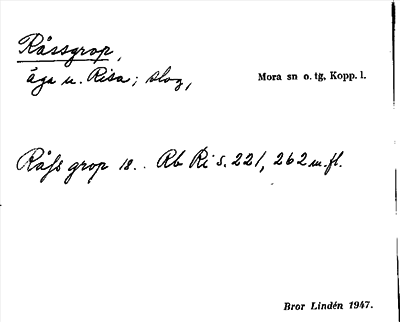 Råssgrop,
äga u. Risa; slog,
Mora sn o. tg, Kopp. l.
Råfs grop 18.. Rb Ri s. 221, 262 m.fl.
Bror Lindén 1947.